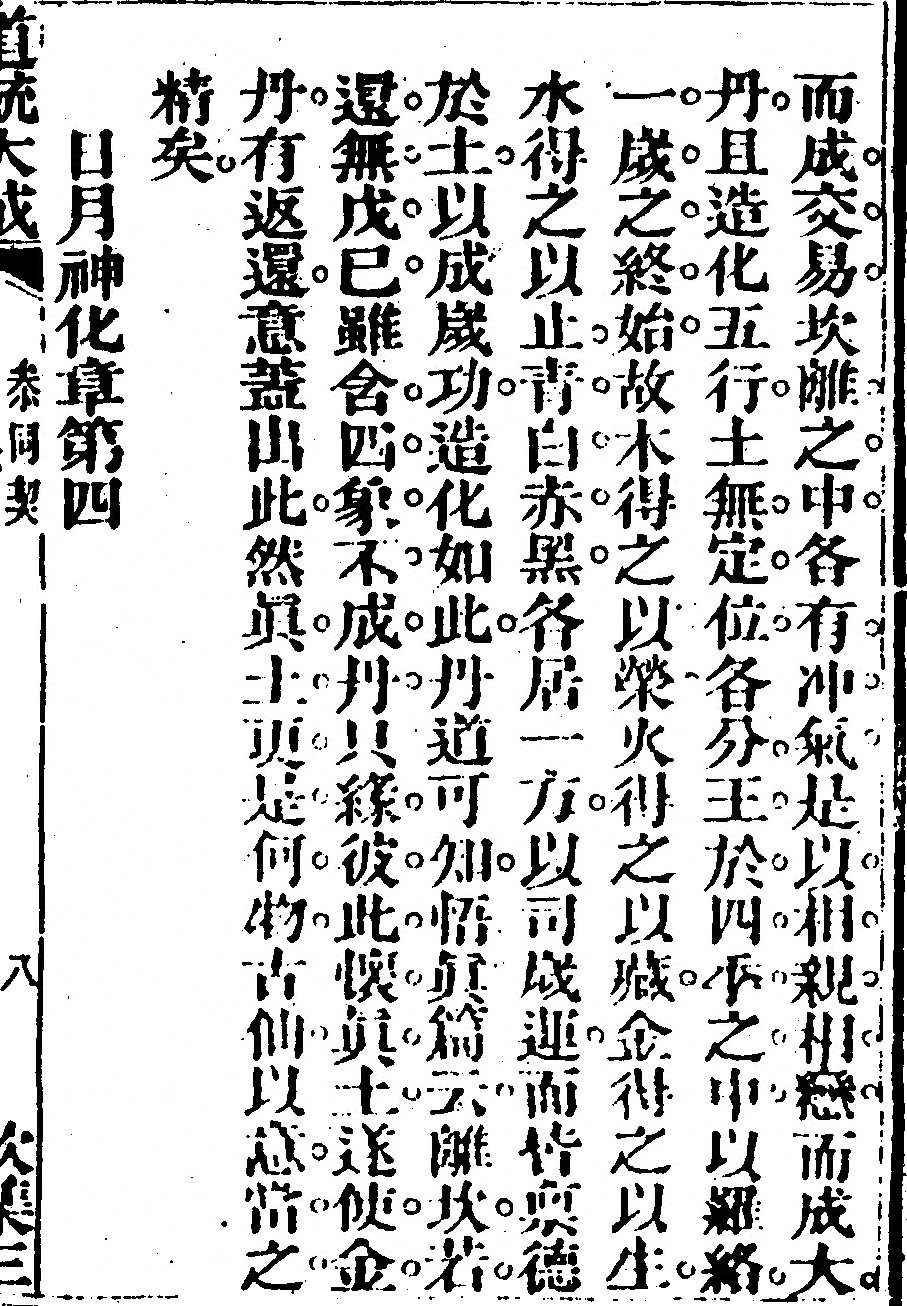 而成交易坎離之中各有冲氣是以相親相戀而成大
丹且造化五行土無定位各分王於四季之中以羅絡
一歲之終始故木得之以榮火得之以藏金得之以生
水得之以止青白赤黑各居一方以司歲運而皆稟德
於土以成歲功造化如此丹道可知悟眞篇云離坎若
還無戊巳雖含四象不成丹只緣彼此懷眞土遂使金
丹有返還意蓋出此然眞土更是何物古仙以意當之
精矣
日月神化章第四
道統大成
參同契
八
次集三